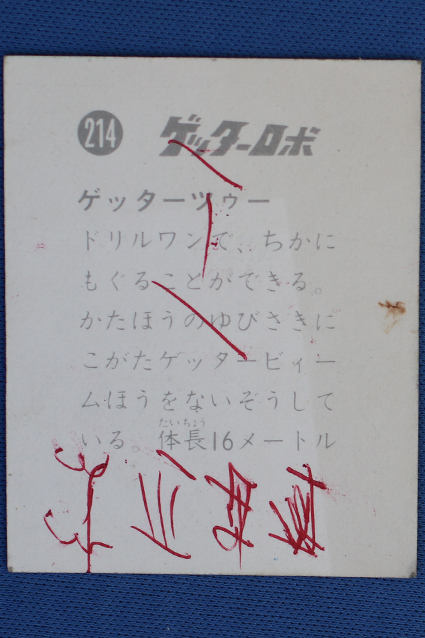 214 ゲッターロボ
ゲッターツゥー
ドリルワンで、ちかに
もぐることができる。
かたほうのゆびさきに
こがたゲッタービィー
ムほうをないぞうして
いる。体長16メートル
たいちょう